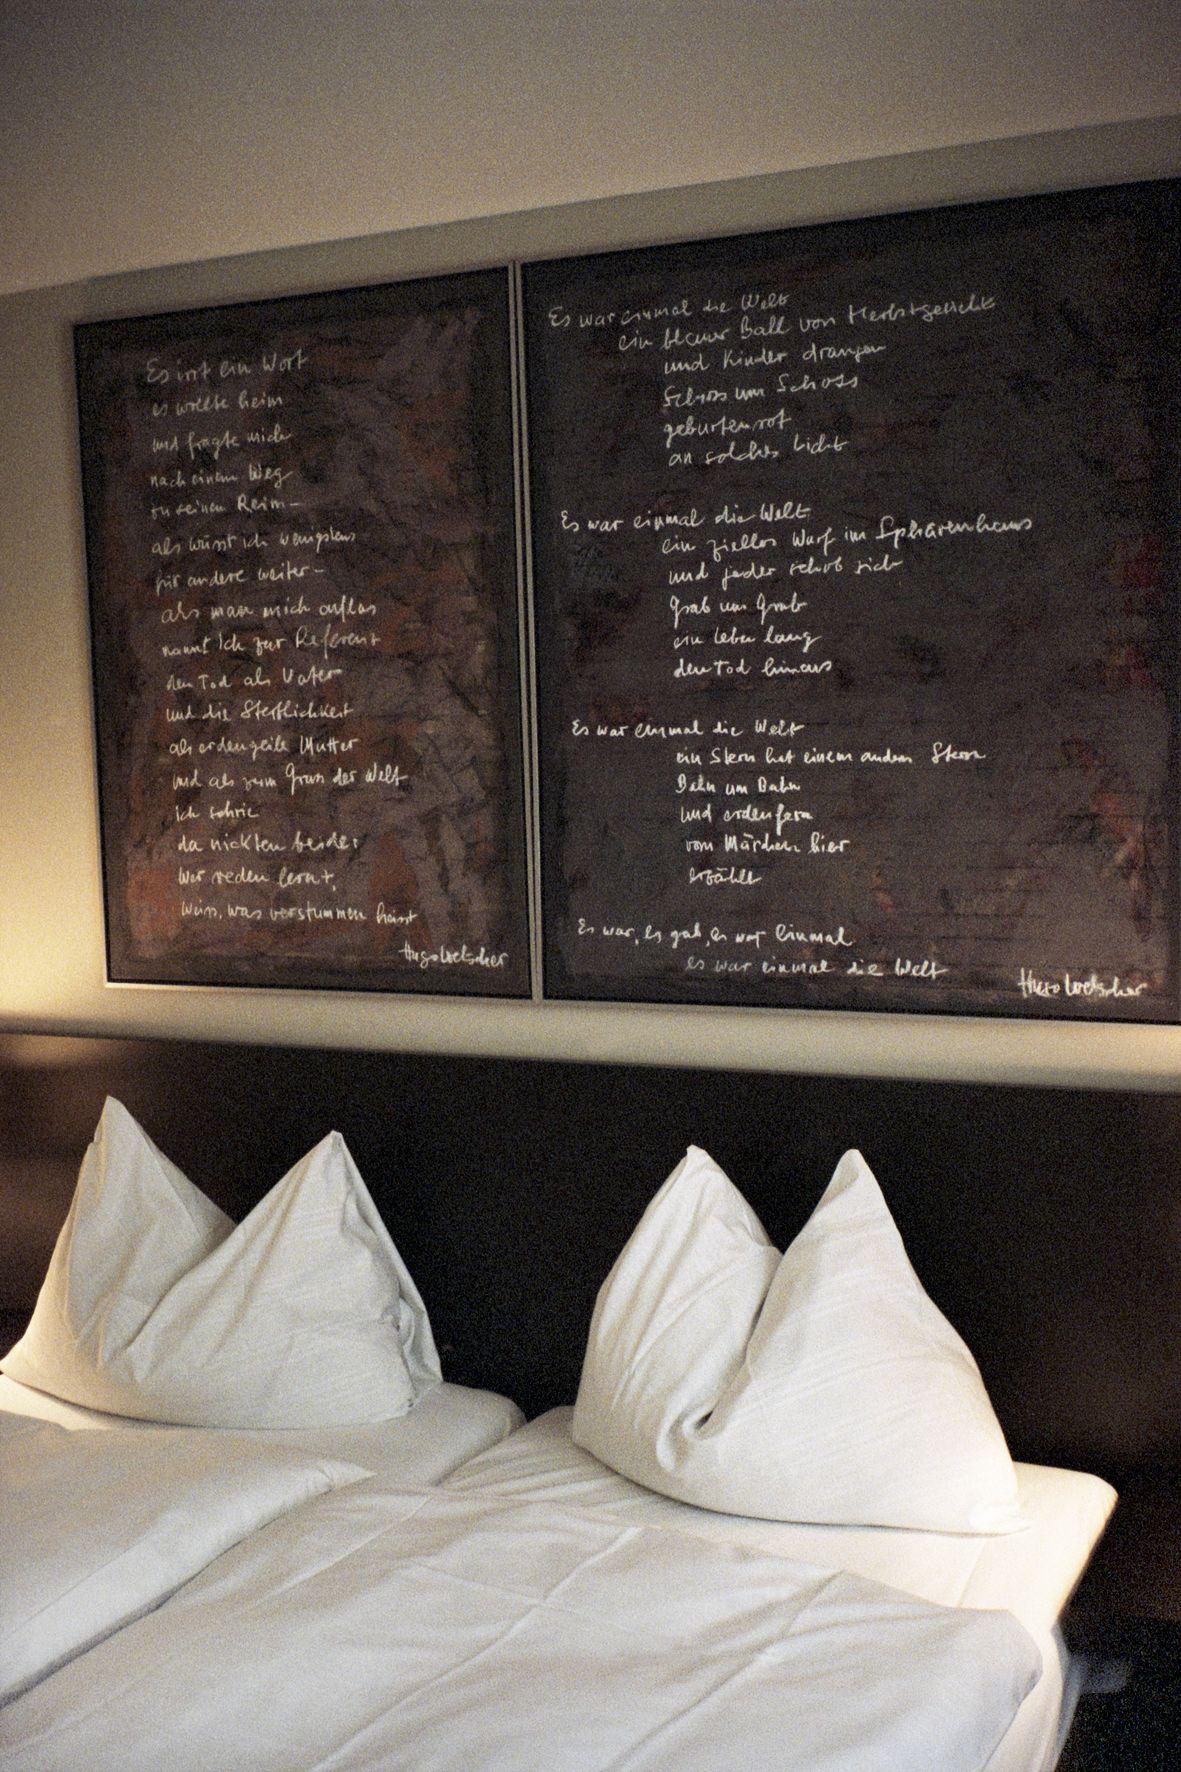 Es irrt ein Wort
es wollte heim
und fragte mich
nach einem Weg
zu seinem Reim –
als wüsst ich wenigstens
für andere weiter –
als man mich auflas
nannt ich zur Referenz
den Tod als Vater
und die Sterblichkeit
als erdengeile Mutter
und als zum Gruss der Welt
ich schrie
da nickten beide:
Wer reden lernt,
weiss, was verstummen heisst
Hugo Loetscher
Es war einmal die Welt
ein blauer Ball von
und Kinder drangen
Schoss um Schoss
geburtenrot
an solches Licht
Es war einmal die Welt
ein zielloser Wurf im Sphärenhaus
und jeder schob sich
Grab um Grab
ein Leben lang
dem Tod hinaus
Es war einmal die Welt
ein Stern hat einem andern Stern
Bahn um Bahn
und erdenfern
vom Märchen hier
erzählt
Es war, es gab, es war einmal
es war einmal die Welt
Hugo Loetscher